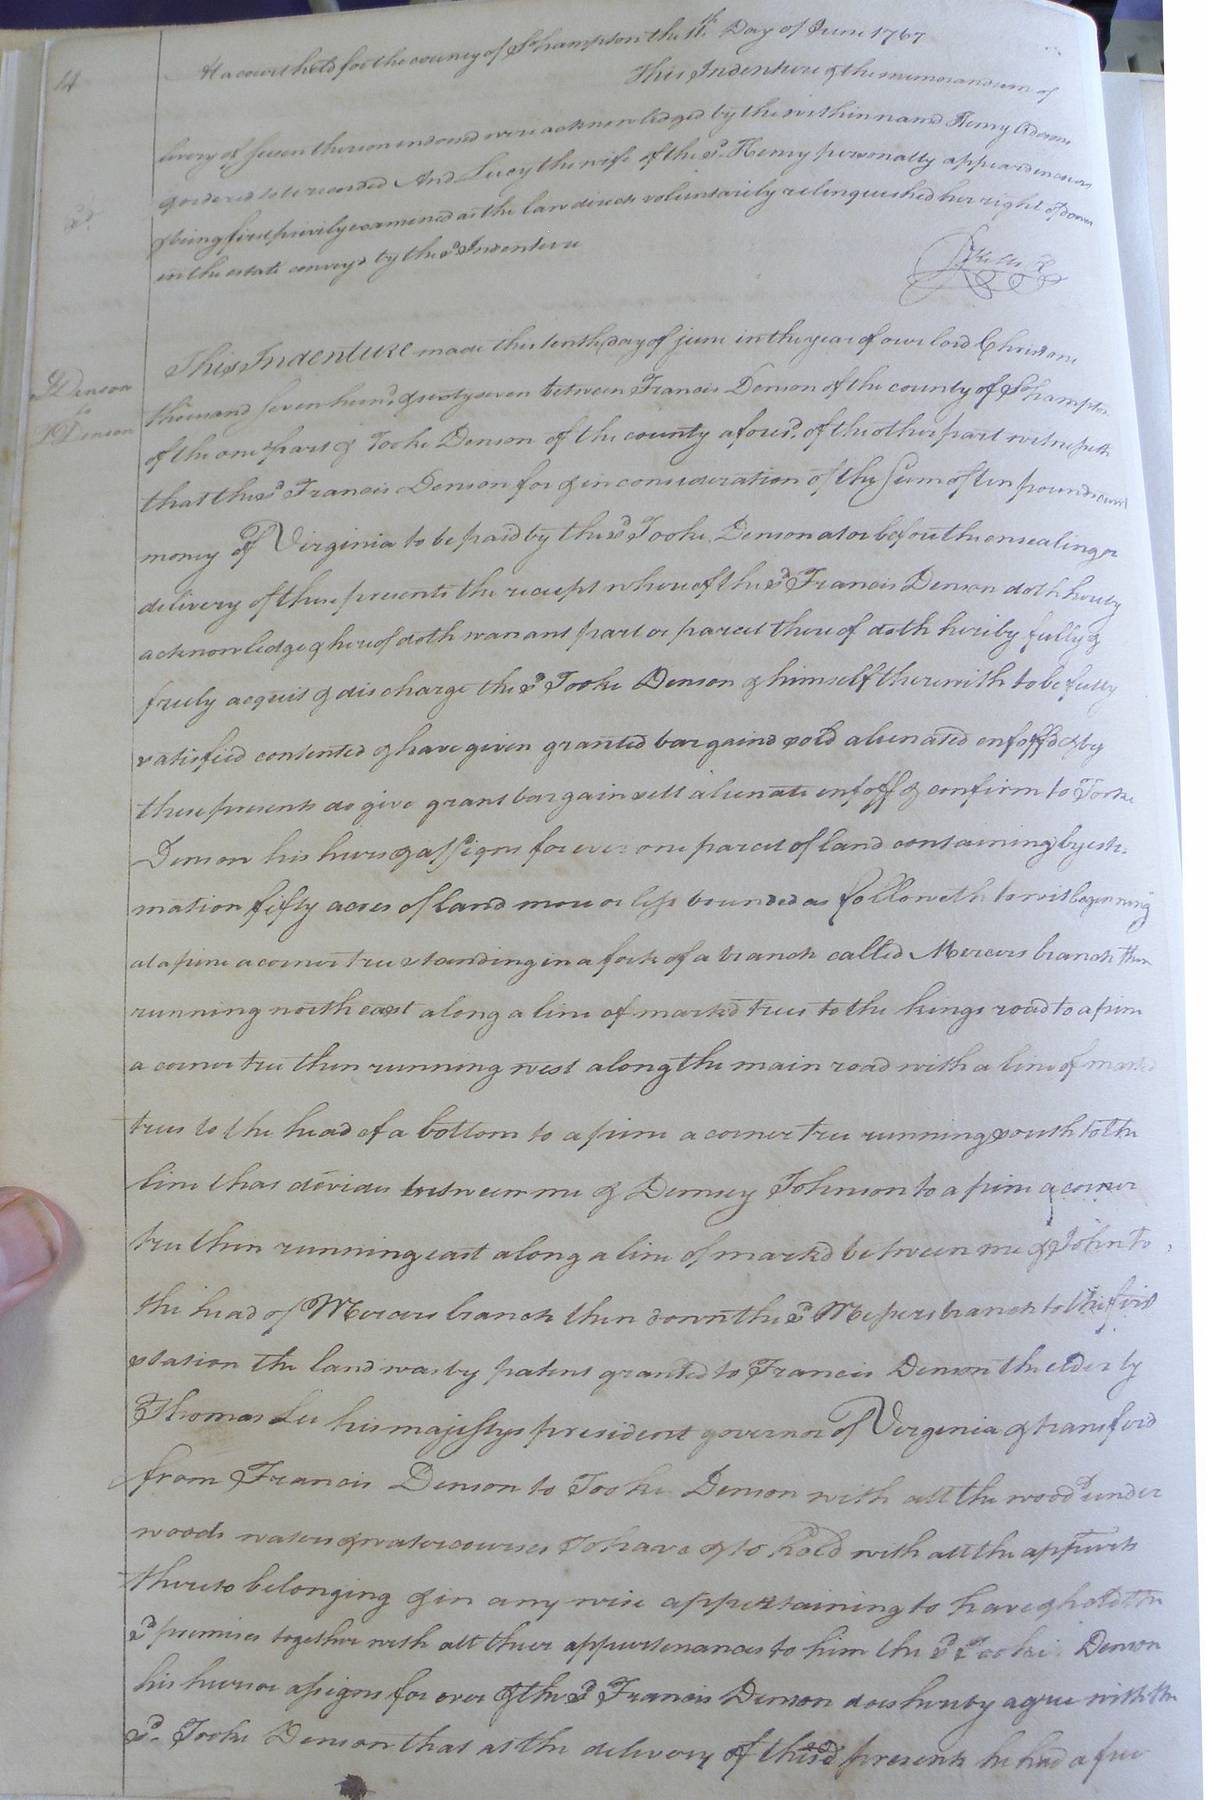 14
At a court held for the county of So.hampton the 11th Day of June 1767
This Indenture & the memorandum of
livery of seisen thereon endorsed were acknowledged by the within named Henry Adams
& ordered to be recorded And Lucy the wife of the sd. Henry personally appeared in court
& being first privily examined as the law directs voluntarily relinquished her right of dower
in the estate convey'd by the sd Indenture
This Indenture made this tenth day of june in the year of our lord Christ one
F Denson
to
T Denson
thousand seven hund. & sixty seven between Francis Denson of the county of So.hampton
of the one part & Tooke Denson of the county afores.d of the other part witnesseth
that the sd Francis Denson for & in consideration of the Sum of ten pounds curr.t
money of Virginia to be paid by the sd Tooke Denson at or before the ensealing or
delivery of these presents the receipt whereof the sd Francis Denson doth hereby
acknowledge & hereof doth warrant part or parcel thereof doth hereby fully &
freely acquit & discharge the sd Tooke Denson & himself therewith to be fully
satisfied contented & have given granted bargaind sold alienated enfoff'd & by
these presents do give grant bargain sell alienate enfoff & confirm to Tooke
Denson his heirs & assigns for ever one parcel of land containing by esti-
mation fifty acres of land more or less bounded as followeth to wit beginning
at a pine a corner tree standing in a fork of a branch called Mercers branch then
running north east along a line of markd trees to the kings road to a pine
a corner tree then running west along the main road with a line of markd
trees to the head of a bottom to a pine a corner tree running south to the
line that devides between me & Demsey Johnson to a pine a corner
tree then running east along a line of markd between me & John to
the head of Mercers branch then down the sd Mersers branch to the first
station the land was by patent granted to Francis Denson the elder by
Thomas Lee his majestys president governor of Virginia & transferd
from Francis Denson to Tooke Denson with all the wood under
woods waters & watercourses To have & to hold with all the appurts
thereto belonging & in any wise appertaining to have & hold the
sd premises together with all their appurtenances to him the sd Tooke Denson
his heirs or assigns for ever & the sd Francis Denson does hereby agree with the
sd. Tooke Denson that at the delivery of these presents he had a free